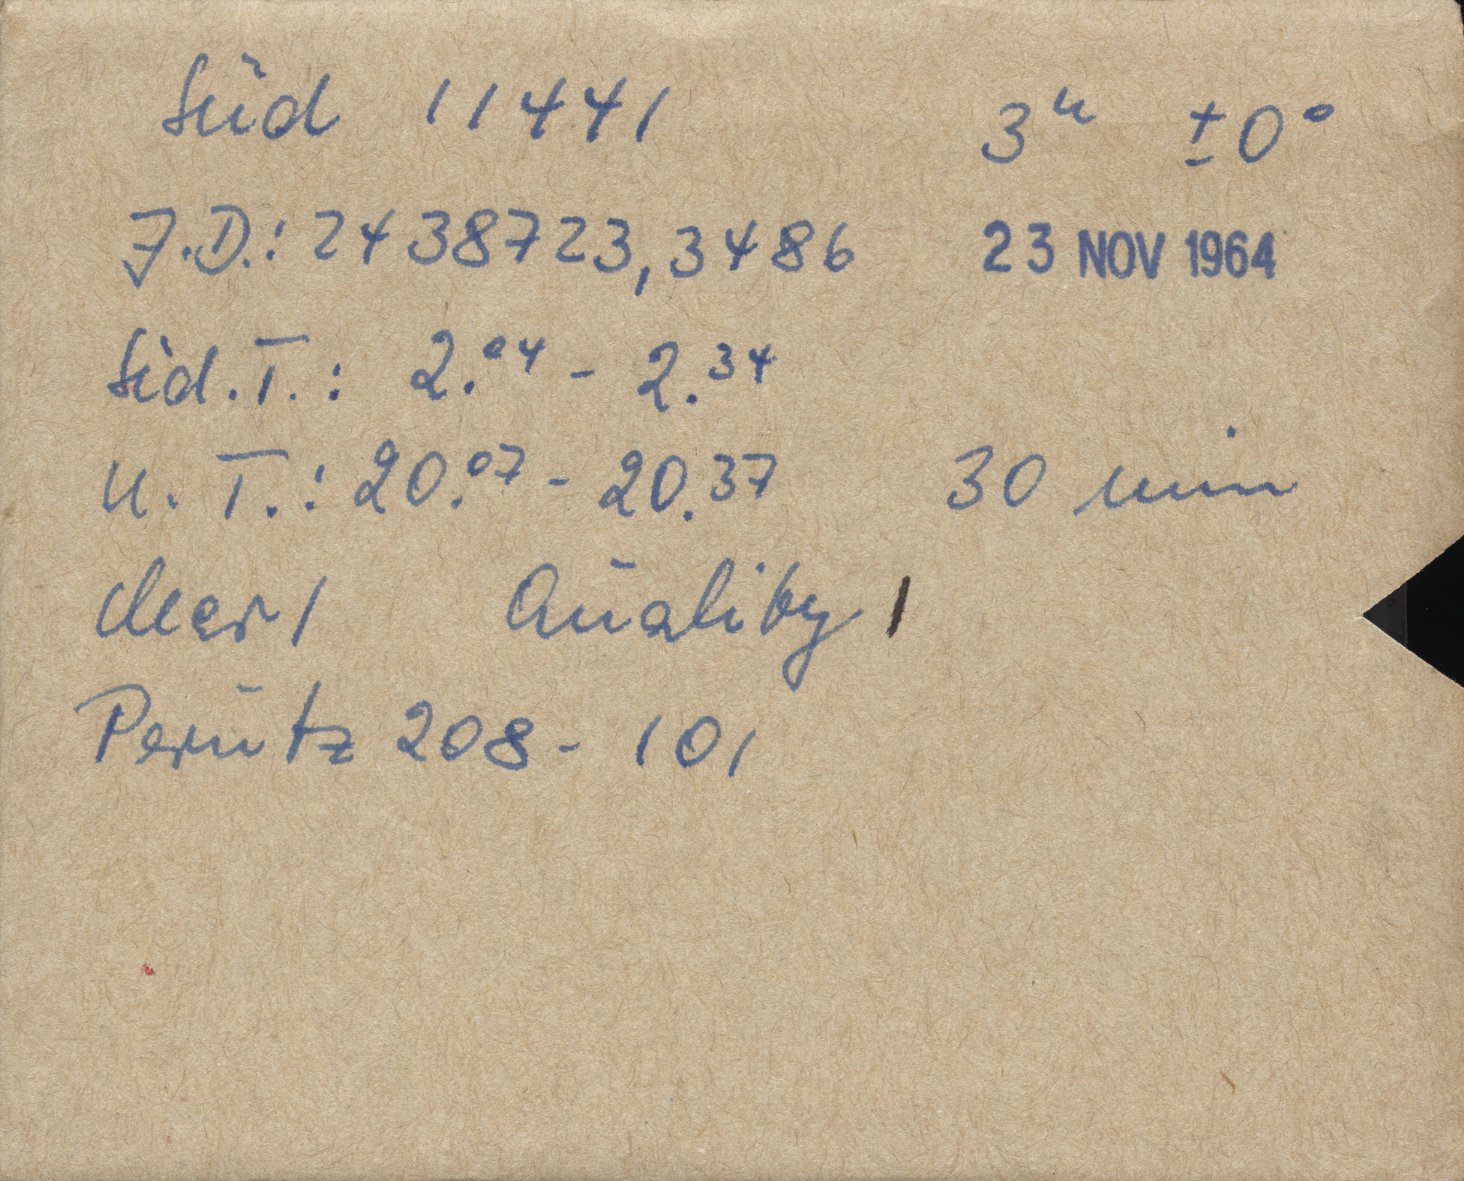 Süd 11441 3ʰ ±0°
J.D.: 2438723,3486 23 NOV 1964
Sid.T.: 2.⁰⁴ - 2.³⁴
U.T.: 20.⁰⁷ - 20.³⁷ 30 min
clear 1 Quality 1
Perutz 208 - 101